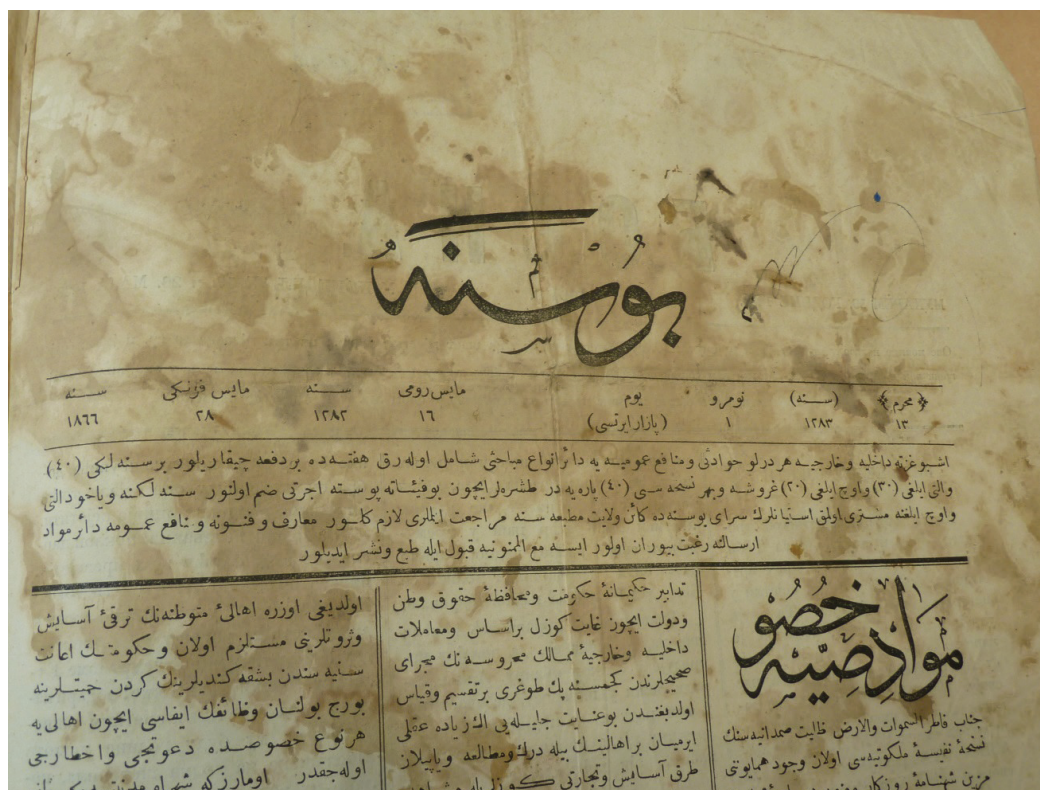 بوسنه
محرم ١٣ (سنه) ١٢٨٣ نومرو ١ يوم (پازار ايرتسى) مايس رومى ١٦ سنه ١٢٨٢ مايس فرنكى ٢٨ سنه ١٨٦٦
اشبو غزته داخليه وخارجيه هر درلو حوادثى ومنافع عموميه يه دائر انواع مباحثى شامل اوله رق هفته ده بر دفعه چيقاريلور بر سنه لكى (٤٠)
والتى ايلغى (٣٠) واوچ ايلغى (٢٠) غروشه وبهر نسخه سى (٤٠) پاره يه در طشره لر ايچون بو فيئاته پوسته اجرتى ضم اولنور سنه لكنه وياخود التى
واوچ ايلغنه مشترى اولمق استيانلرك سراى بوسنه ده كائن ولايت مطبعه سنه مراجعت ايملرى لازم كلور معارف و فنونه و منافع عموميه دائر مواد
ارسالنه رغبت بيوران اولور ايسه مع الممنونيه قبول ايله طبع ونشر ايديلور
مواد خصوصيه
جناب فاطر السموات والارض ظاليت صمدانيه سنك
نسخهٔ نفيسهٔ ملكوتيه سى اولان وجود همايونى
مزين شهنامهٔ روزكار
تدابير حكيمانهٔ حكومت ومحافظهٔ حقوق وطن
ودولت ايچون غايت كوزل بر اساس ومعاملات
داخليه وخارجيهٔ ممالك محروسه نك مجراى
صحيحلرندن كچمسنه پك طوغرى بر تقسيم وقياس
اولديغندن بو عنايت جليله يى اك زياده عقلى
ايرميان بر اهالينك بيله درك ومطالعه وياپيلان
طرق آسايش وتجارتى كوزل
اولديغى اوزره اهالئ متوطنه نك ترقئ آسايش
وثروتلرينى مستلزم اولان و حكومتك اعانت
سنيه سندن بشقه كنديلرينك كردن حميتلرينه
بورج بولنان وظائفك ايفاسى ايچون اهالى يه
هر نوع خصوصده دعوتجى واخطارجى
اوله جقدر